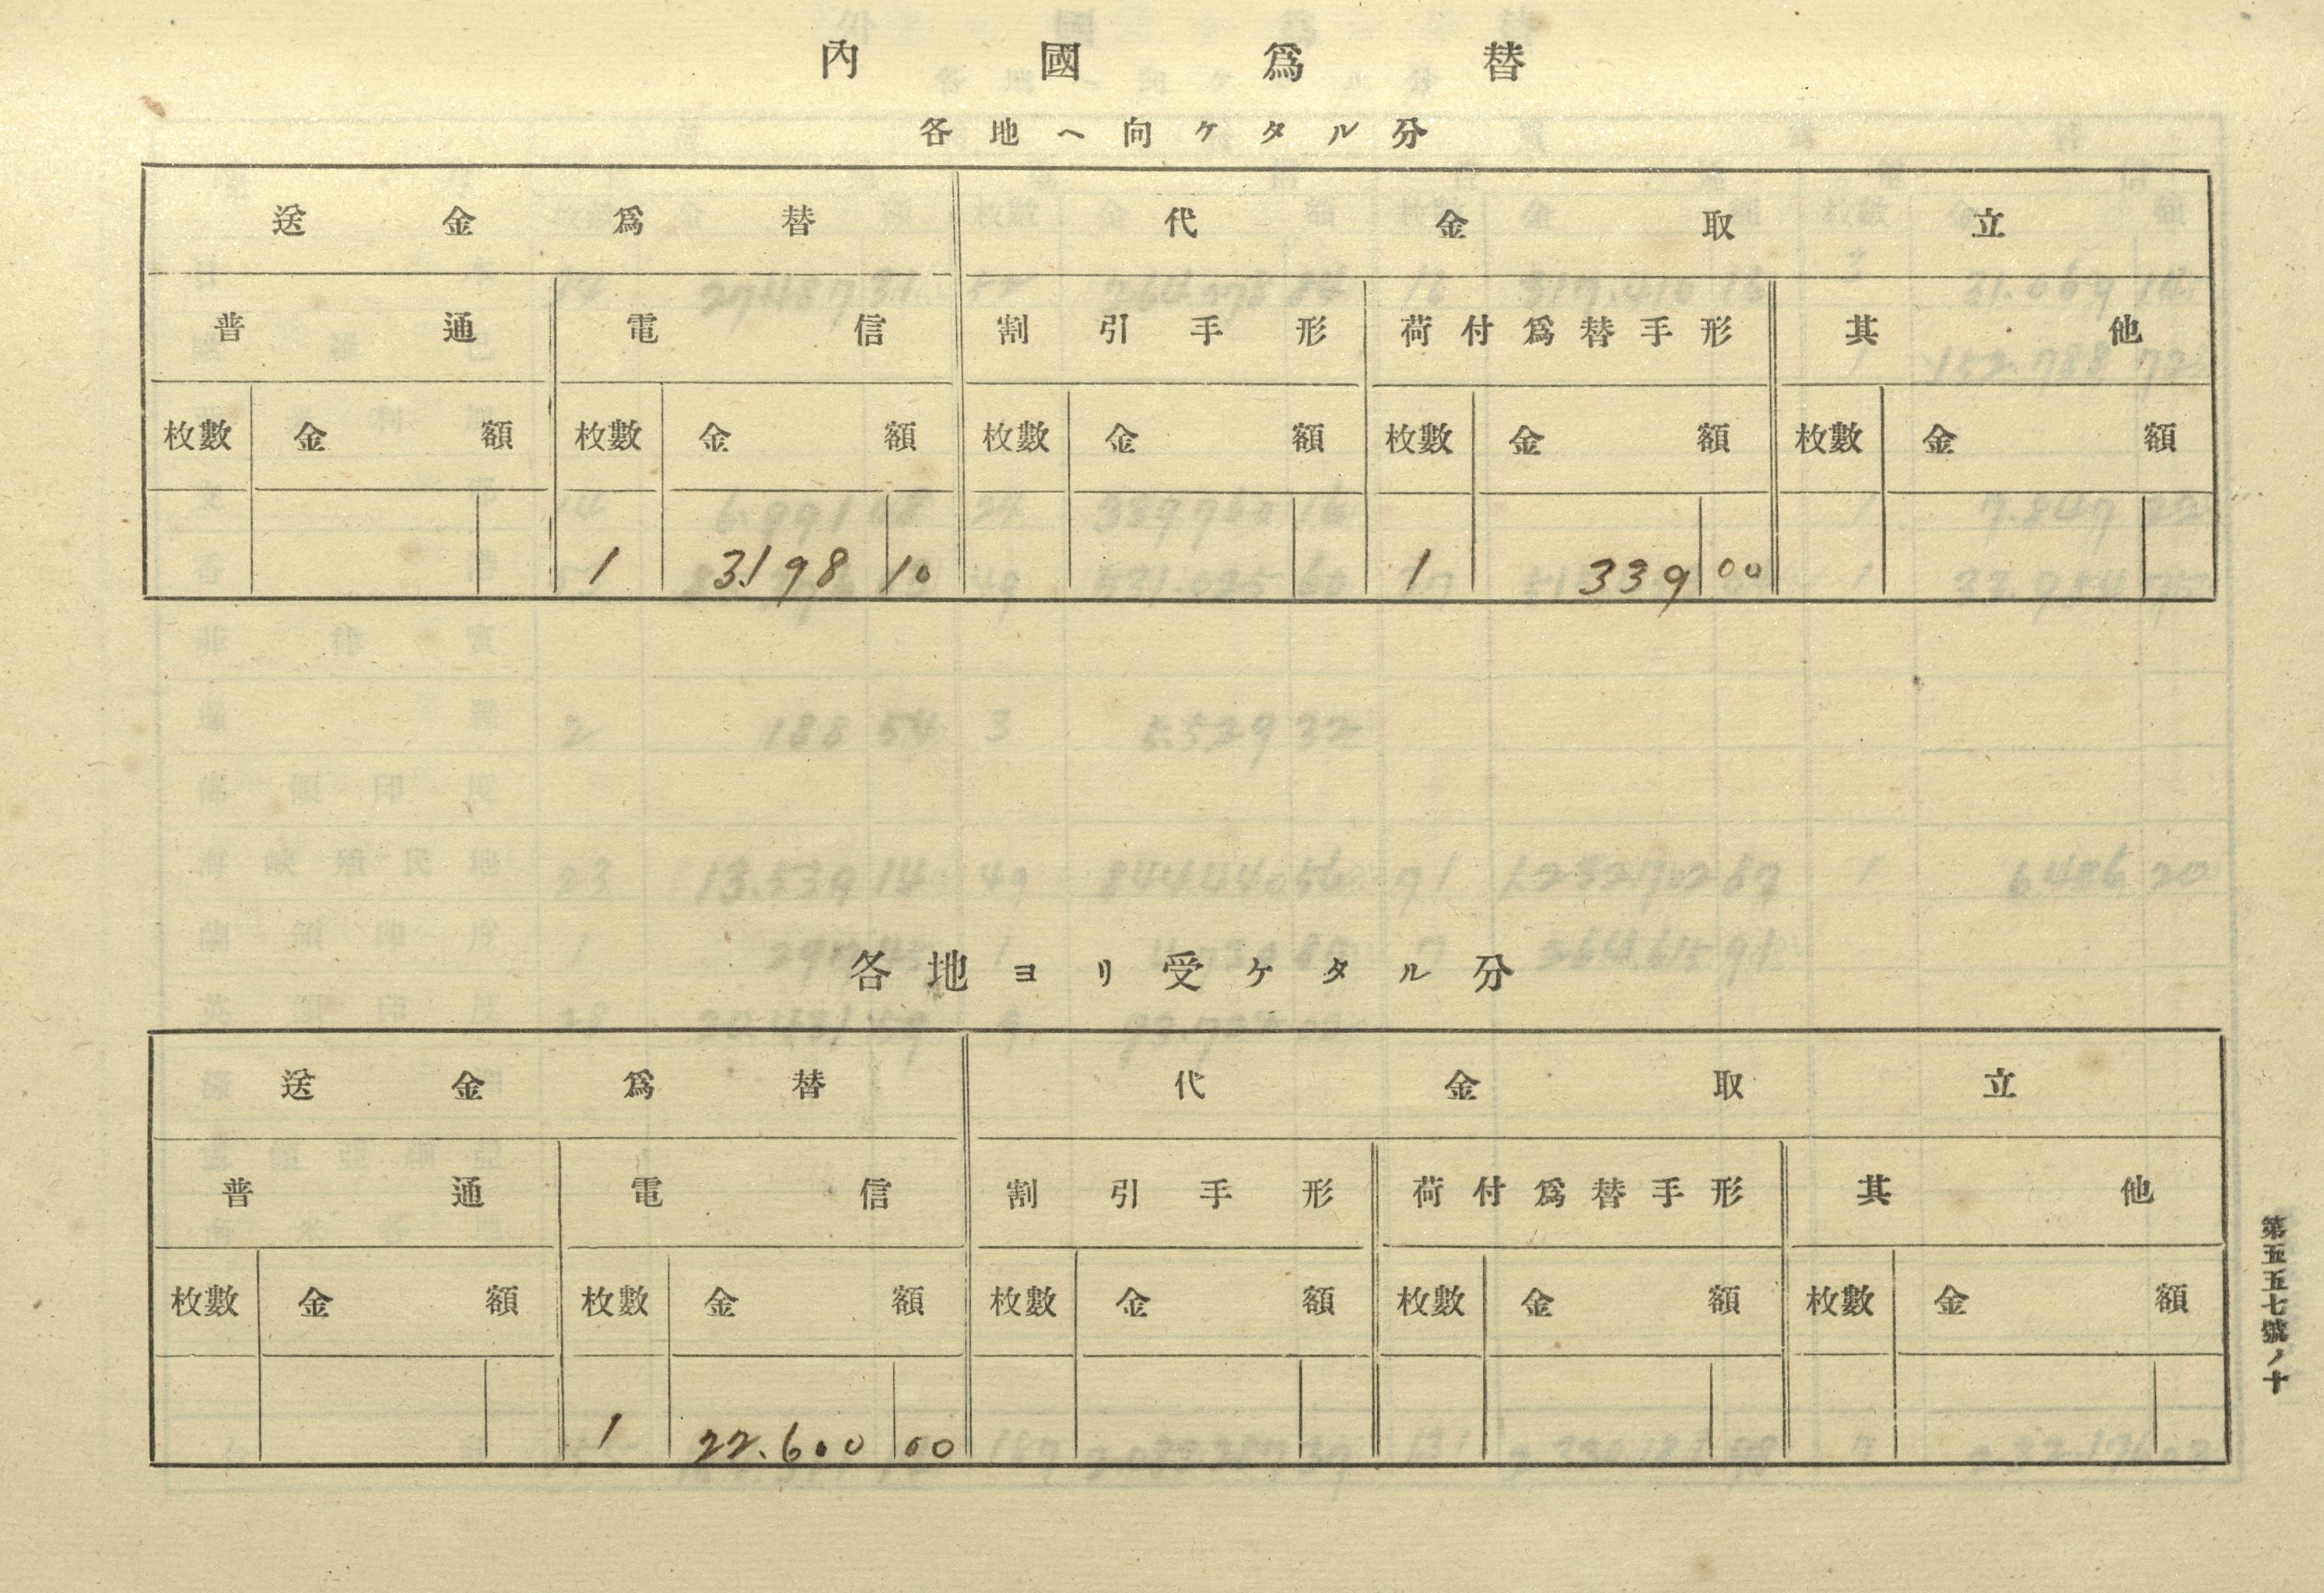 內國爲替
各地へ向ケタル分
送金爲替 代金取立
普通 電信 割引手形 荷付爲替手形 其他
枚數 金額 枚數 金額 枚數 金額 枚數 金額 枚數 金額
1 3.198 10 1 339 00
各地ヨリ受ケタル分
送金爲替 代金取立
普通 電信 割引手形 荷付爲替手形 其他
枚數 金額 枚數 金額 枚數 金額 枚數 金額 枚數 金額
1 22.600 00
第五五七號ノ十